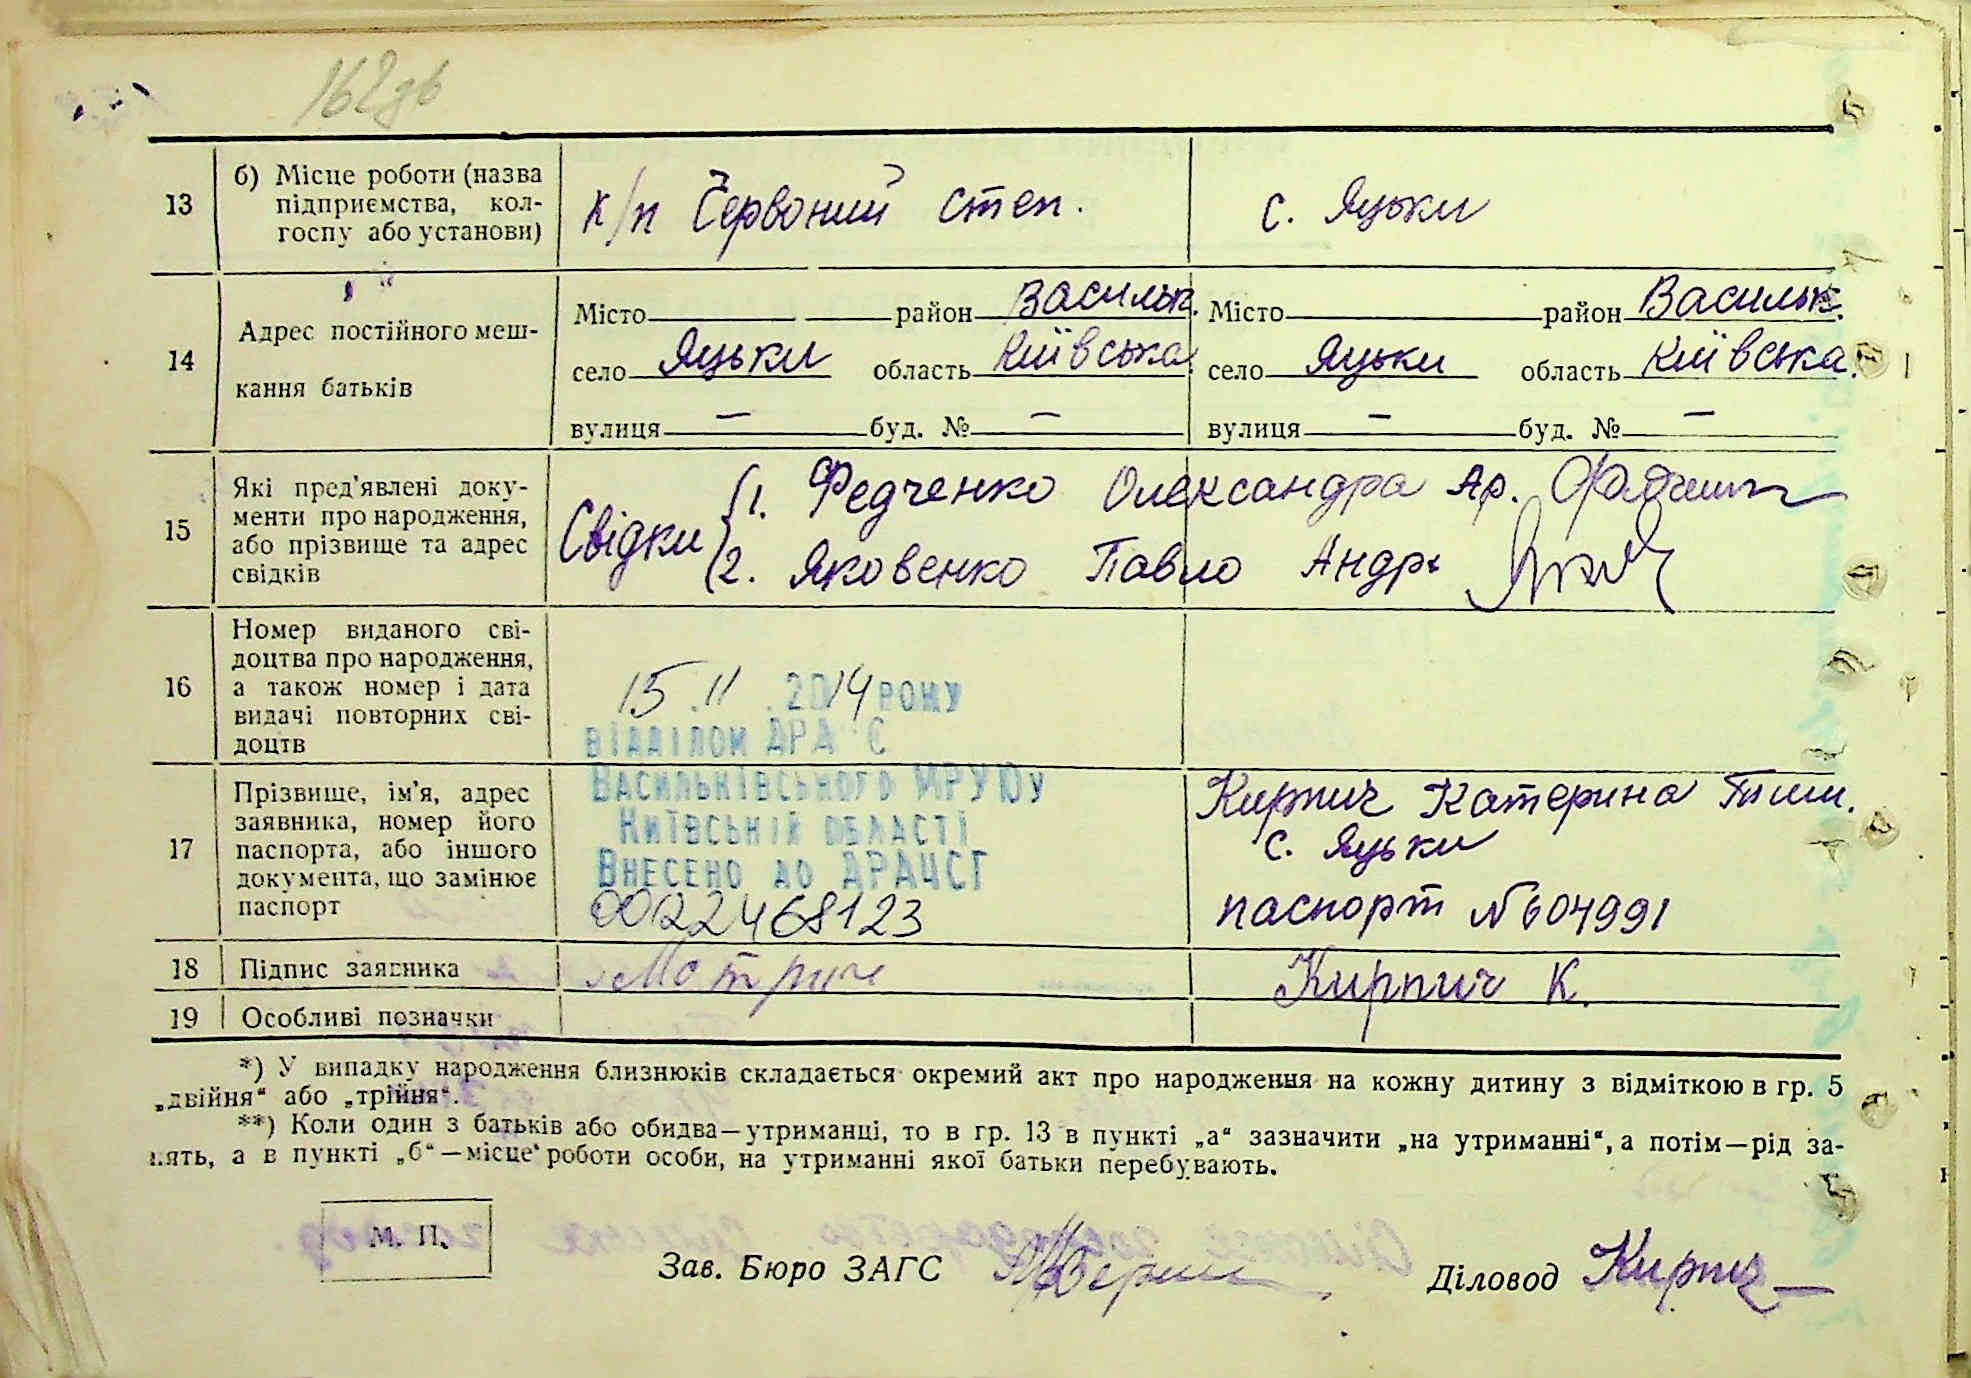 162 зв
13
б) Місце роботи (назва
підприємства, кол-
госпу або установи)
к/п Червоний степ.
с. Яцьки
14
Адрес постійного меш-
кання батьків
Місто район Васильк.
село Яцьки область Київська
вулиця — буд. № —
Місто район Васильк.
село Яцьки область Київська.
вулиця — буд. № —
15
Які пред'явлені доку-
менти про народження,
або прізвище та адрес
свідків
Свідки
1. Федченко Олександра Ар.
2. Яковенко Павло Андр
16
Номер виданого сві-
доцтва про народження,
а також номер і дата
видачі повторних сві-
доцтв
15.11.2014 РОКУ
ВІДДІЛОМ ДРАЦС
ВАСИЛЬКІВСЬКОГО МРУЮ у
КИЇВСЬКІЙ ОБЛАСТІ
ВНЕСЕНО ДО ДРАЦСГ
0022468123
17
Прізвище, ім'я, адрес
заявника, номер його
паспорта, або іншого
документа, що замінює
паспорт
Кирпич Катерина Тим.
с. Яцьки
паспорт № 604991
18
Підпис заявника
Кирпич К.
19
Особливі позначки
*) У випадку народження близнюків складається окремий акт про народження на кожну дитину з відміткою в гр. 5
„двійня“ або „трійня“.
**) Коли один з батьків або обидва—утриманці, то в гр. 13 в пункті „а“ зазначити „на утриманні“, а потім—рід за-
нять, а в пункті „б“—місце роботи особи, на утриманні якої батьки перебувають.
М. П.
Зав. Бюро ЗАГС
Діловод Кирпич